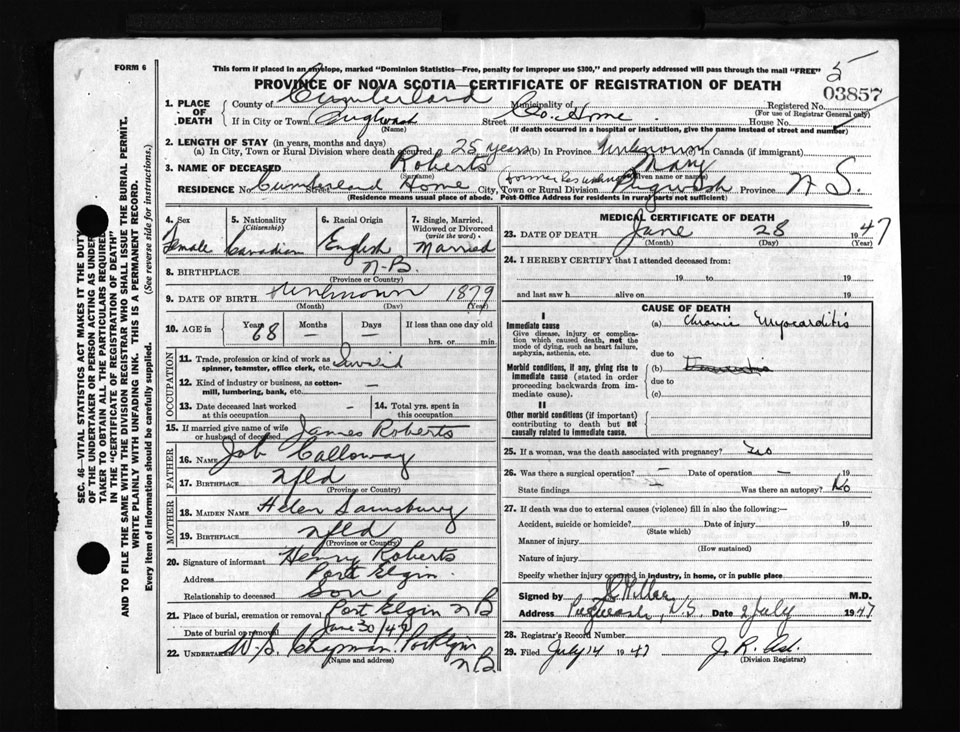 5
FORM 6
This form if placed in an envelope, marked "Dominion Statistics—Free, penalty for improper use $300," and properly addressed will pass through the mail "FREE"
PROVINCE OF NOVA SCOTIA—CERTIFICATE OF REGISTRATION OF DEATH
03857
1. PLACE OF DEATH
County of Cumberland Municipality of Co. Home Registered No.
(For use of Registrar General only)
If in City or Town Pugwash Street House No.
(Name) (If death occurred in a hospital or institution, give the name instead of street and number)
2. LENGTH OF STAY (in years, months and days)
(a) In City, Town or Rural Division where death occurred 25 years (b) In Province Unknown In Canada (if immigrant)
3. NAME OF DECEASED Roberts Mary
(Surname) (Given name or names)
(Former Res unknown)
RESIDENCE No. Cumberland Home City, Town or Rural Division Pugwash Province N S.
(Residence means usual place of abode. Post Office Address for residents in rural parts not sufficient)
4. Sex Female
5. Nationality (Citizenship) Canadian
6. Racial Origin English
7. Single, Married, Widowed or Divorced (write the word) Married
8. BIRTHPLACE N-B.
(Province or Country)
9. DATE OF BIRTH Unknown 1879
(Month) (Day) (Year)
10. AGE in Years 68 Months – Days – If less than one day old
hrs. or min.
OCCUPATION
11. Trade, profession or kind of work as spinner, teamster, office clerk, etc.
12. Kind of industry or business, as cotton-mill, lumbering, bank, etc. –
13. Date deceased last worked at this occupation – 14. Total yrs. spent in this occupation
15. If married give name of wife or husband of deceased James Roberts
FATHER
16. NAME Job Calloway
17. BIRTHPLACE Nfld
(Province or Country)
MOTHER
18. MAIDEN NAME Helen Sainsbury
19. BIRTHPLACE Nfld
(Province or Country)
20. Signature of informant Henry Roberts
Address Port Elgin.
Relationship to deceased Son
21. Place of burial, cremation or removal Port Elgin N B
Date of burial or removal June 30/47
22. UNDERTAKER W. S. Chapman. Port Elgin
(Name and address) N B
MEDICAL CERTIFICATE OF DEATH
23. DATE OF DEATH June 28 1947
(Month) (Day) (Year)
24. I HEREBY CERTIFY that I attended deceased from:
19 to 19
and last saw h alive on 19
CAUSE OF DEATH
I
Immediate cause
Give disease, injury or complication which caused death, not the mode of dying, such as heart failure, asphyxia, asthenia, etc.
(a) Chronic Myocarditis
due to
Morbid conditions, if any, giving rise to immediate cause (stated in order proceeding backwards from immediate cause).
(b)
due to
(c)
II
Other morbid conditions (if important) contributing to death but not causally related to immediate cause.
25. If a woman, was the death associated with pregnancy?
26. Was there a surgical operation? – Date of operation – 19
State findings Was there an autopsy? No
27. If death was due to external causes (violence) fill in also the following:—
Accident, suicide or homicide? Date of injury 19
(State which)
Manner of injury
(How sustained)
Nature of injury
Specify whether injury occurred in industry, in home, or in public place
Signed by Millar M.D.
Address Pugwash, N.S. Date 2 July 1947
28. Registrar's Record Number
29. Filed July 14 1947 J. R. Ash.
(Division Registrar)
SEC. 46—VITAL STATISTICS ACT MAKES IT THE DUTY
OF THE UNDERTAKER OR PERSON ACTING AS UNDER-
TAKER TO OBTAIN ALL THE PARTICULARS REQUIRED
IN THE "CERTIFICATE OF REGISTRATION OF DEATH"
AND TO FILE THE SAME WITH THE DIVISION REGISTRAR WHO SHALL ISSUE THE BURIAL PERMIT.
WRITE PLAINLY WITH UNFADING INK. THIS IS A PERMANENT RECORD.
Every item of information should be carefully supplied. (See reverse side for instructions.)